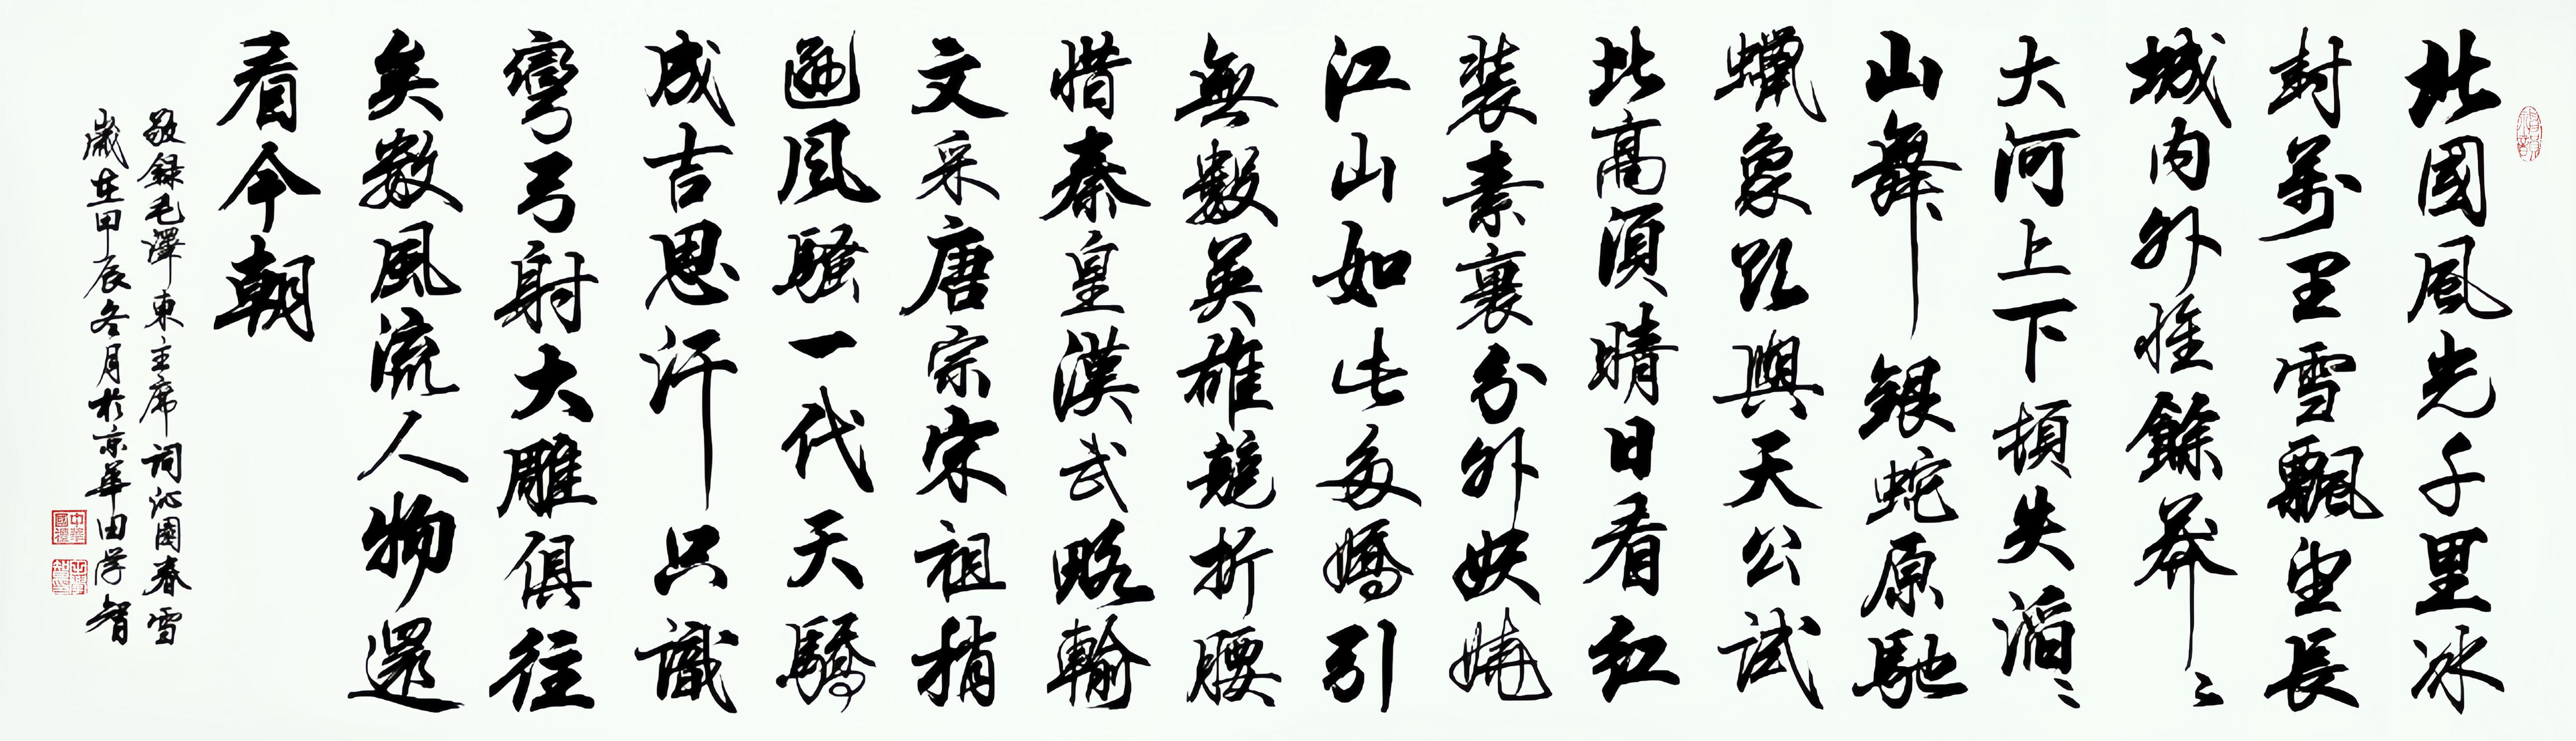 北國風光千里冰
封萬里雪飄望長
城内外惟餘莽〻
大河上下頓失滔〻
山舞銀蛇原馳
蠟象欲與天公試
比高須晴日看红
裝素裹分外妖嬈
江山如此多嬌引
無數英雄競折腰
惜秦皇漢武略輸
文采唐宗宋祖稍
遜風騷一代天驕
成吉思汗只識
彎弓射大雕俱往
矣数風流人物還
看今朝
敬録毛澤東主席詞沁園春雪
歲在甲辰冬月於京華田学智
中華國禮